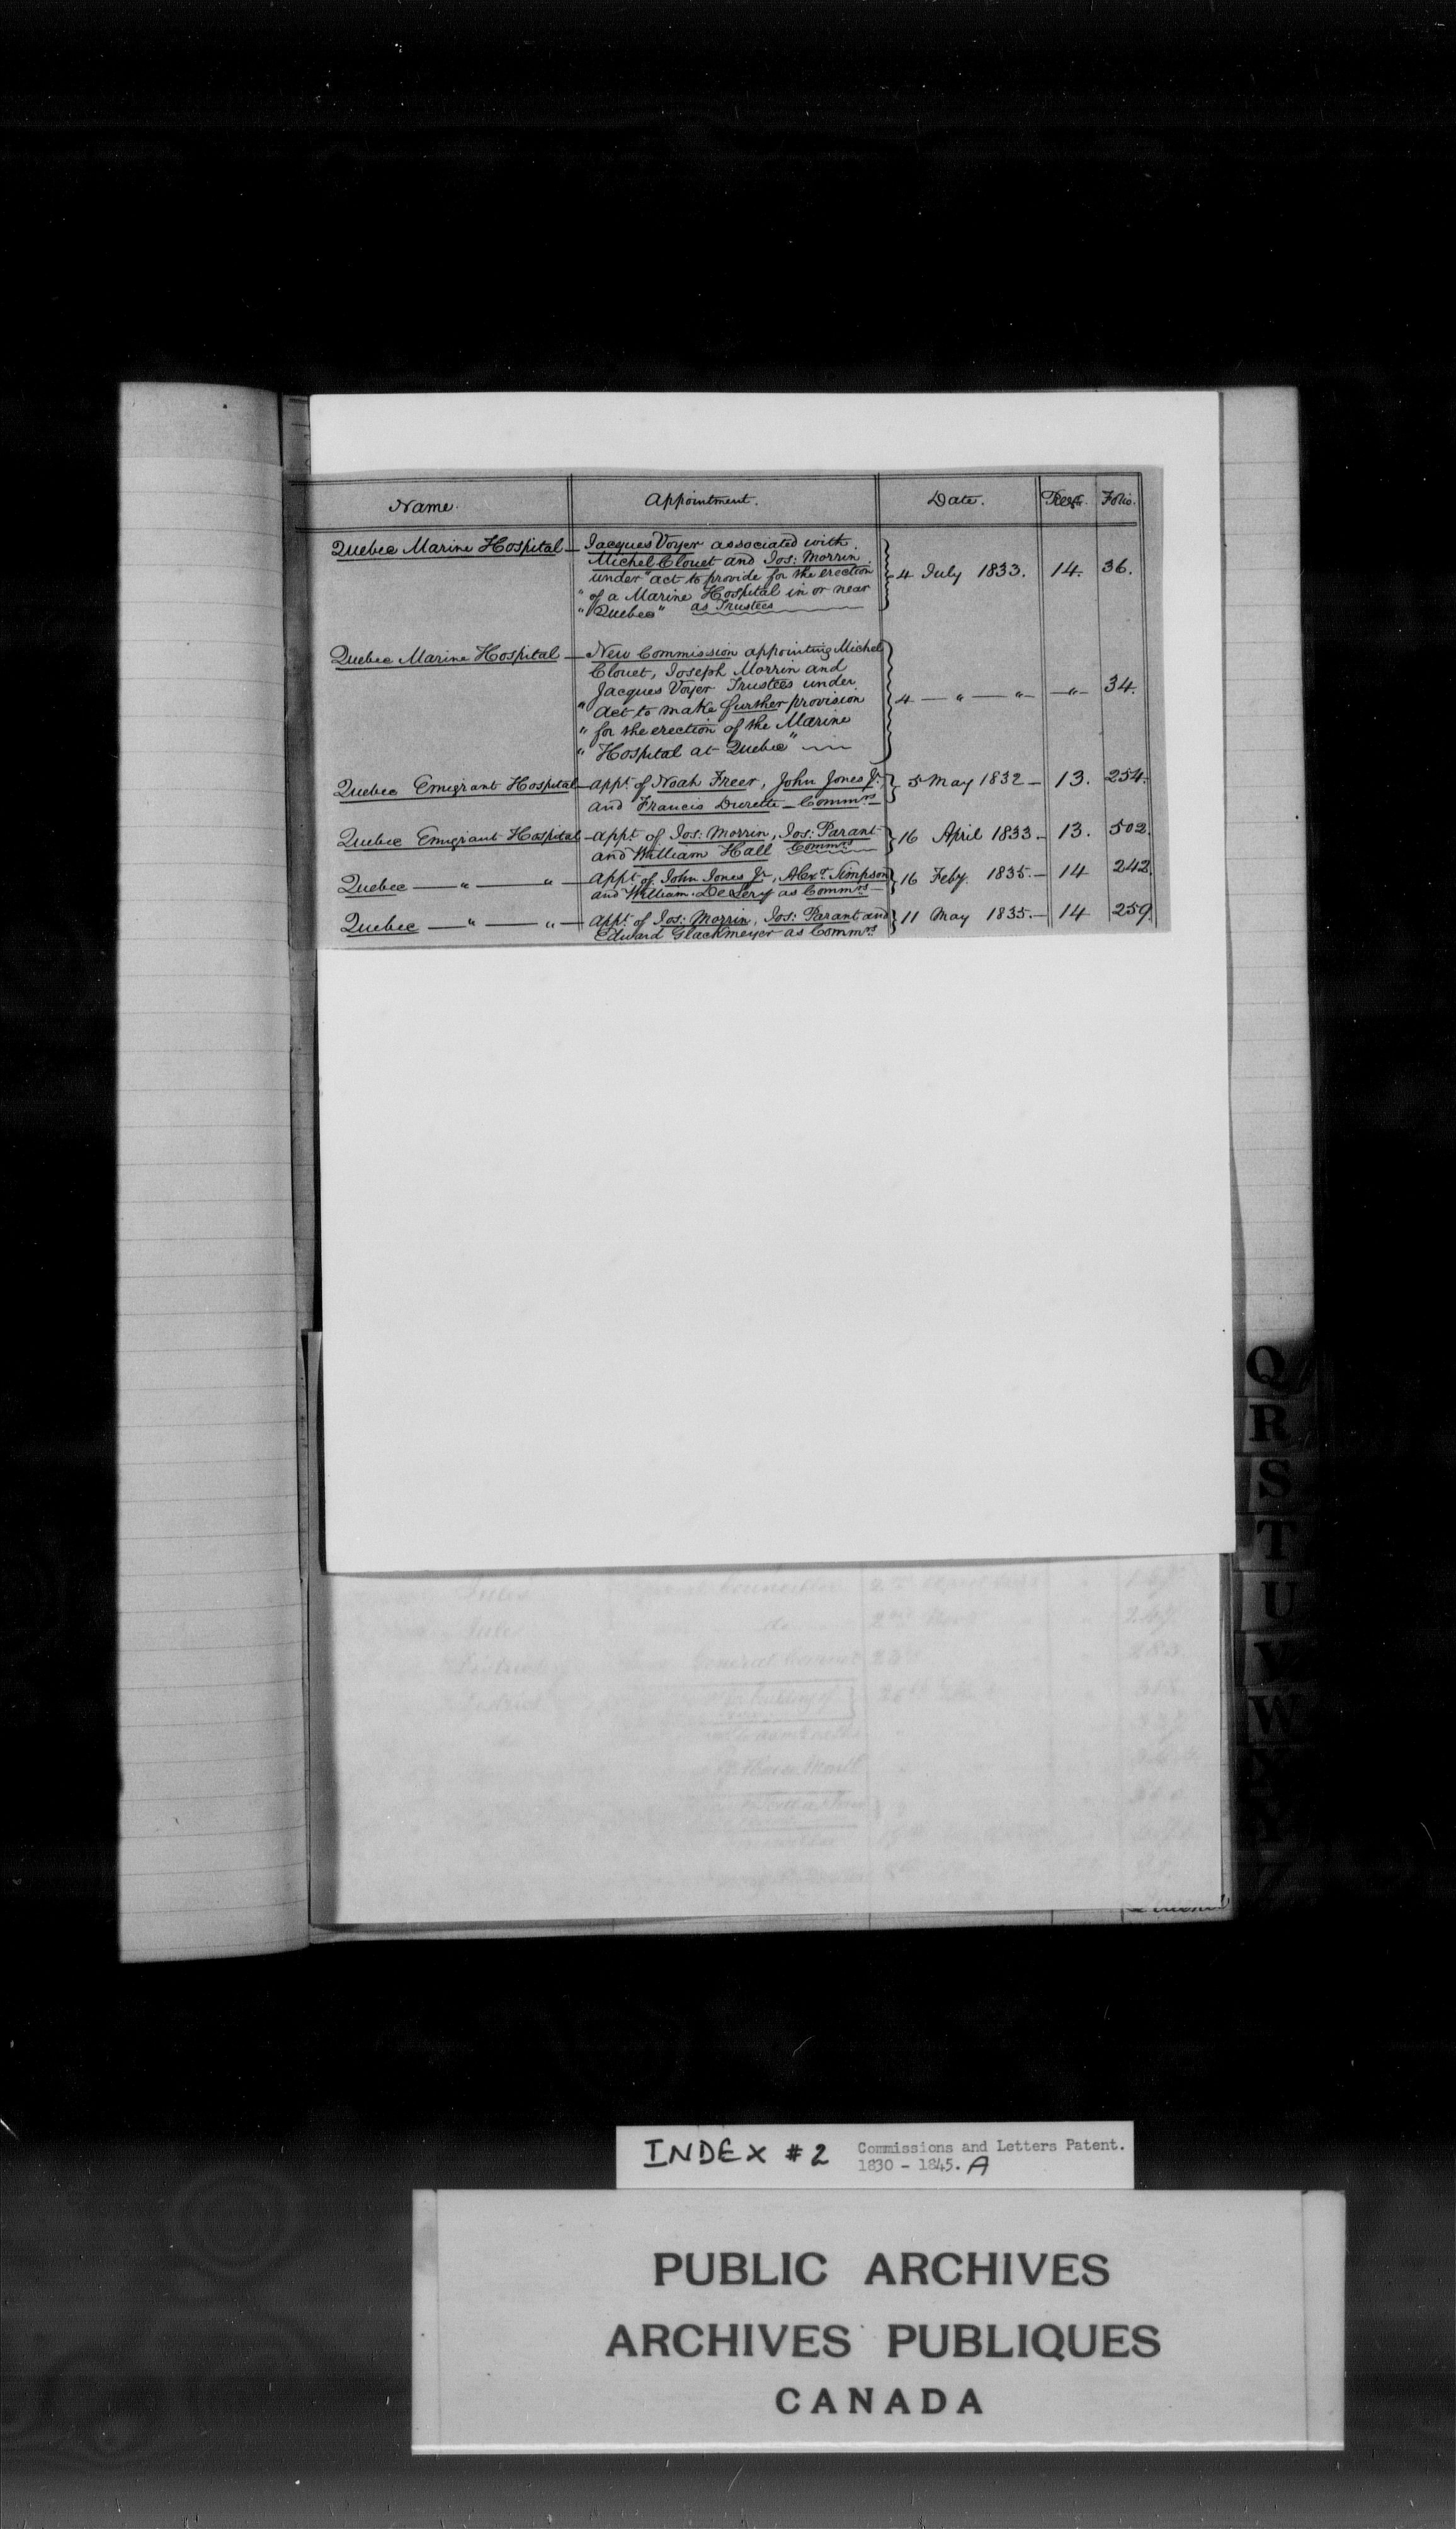 Name. Appointment. Date. Regr. Folio.
Quebec Marine Hospital — Jacques Voyer associated with
Michel Clouet and Jos: Morrin
under "act to provide for the erection
" of a Marine Hospital in or near
" Quebec" as Trustees
4 July 1833. 14. 36.
Quebec Marine Hospital — New Commission appointing Michel
Clouet, Joseph Morrin and
Jacques Voyer Trustees under
" Act to make further provision
" for the erection of the Marine
" Hospital at Quebec"
4 — " — " — — " — 34.
Quebec Emigrant Hospital — appt. of Noah Freer, John Jones Jr.
and Francis Durette — Commrs —
5 May 1832 — 13. 254.
Quebec Emigrant Hospital — appt. of Jos: Morrin, Jos: Parant
and William Hall Commrs
16 April 1833 — 13. 502.
Quebec — " — " — Appt. of John Jones Jr, Alexr Simpson
and William De Lery as Commrs —
16 Feby. 1835. — 14 242.
Quebec — " — " — appt. of Jos: Morrin, Jos: Parant and
Edward Glackmeyer as Commrs
11 May 1835. — 14 259.
Q
R
S
T
U
V
W
Y
Z
INDEX # 2 Commissions and Letters Patent.
1830 - 1845. A
PUBLIC ARCHIVES
ARCHIVES PUBLIQUES
CANADA